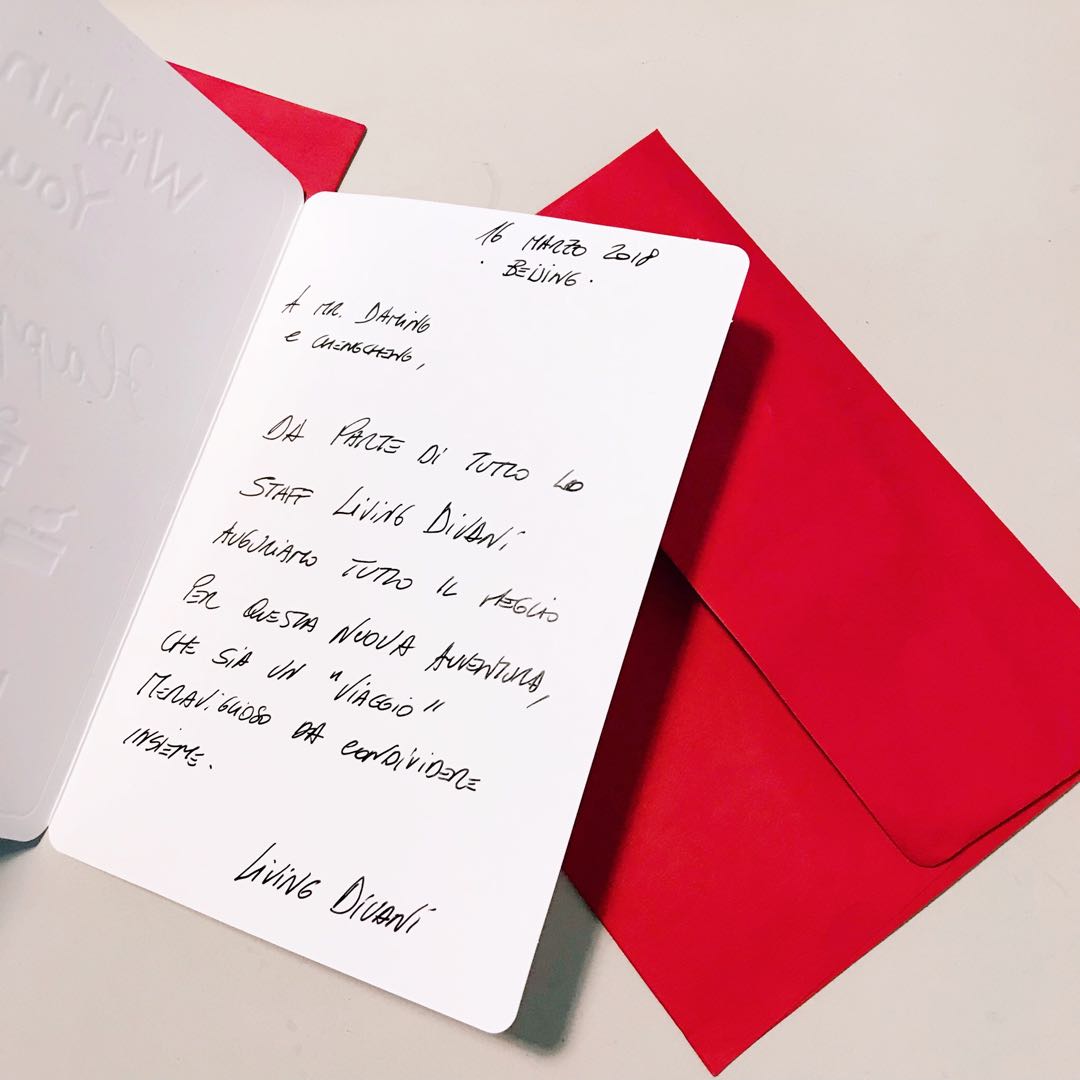 Wishin
You
Hap
16 MARZO 2018
· BEIJING ·
A MR. DAMING
e CHENGCHENG,
DA PARTE DI TUTTO LO
STAFF LIVING DIVANI
AUGURIAMO TUTTO IL MEGLIO
PER QUESTA NUOVA AVVENTURA,
CHE SIA UN "VIAGGIO"
MERAVIGLIOSO DA CONDIVIDERE
INSIEME.
LIVING DIVANI